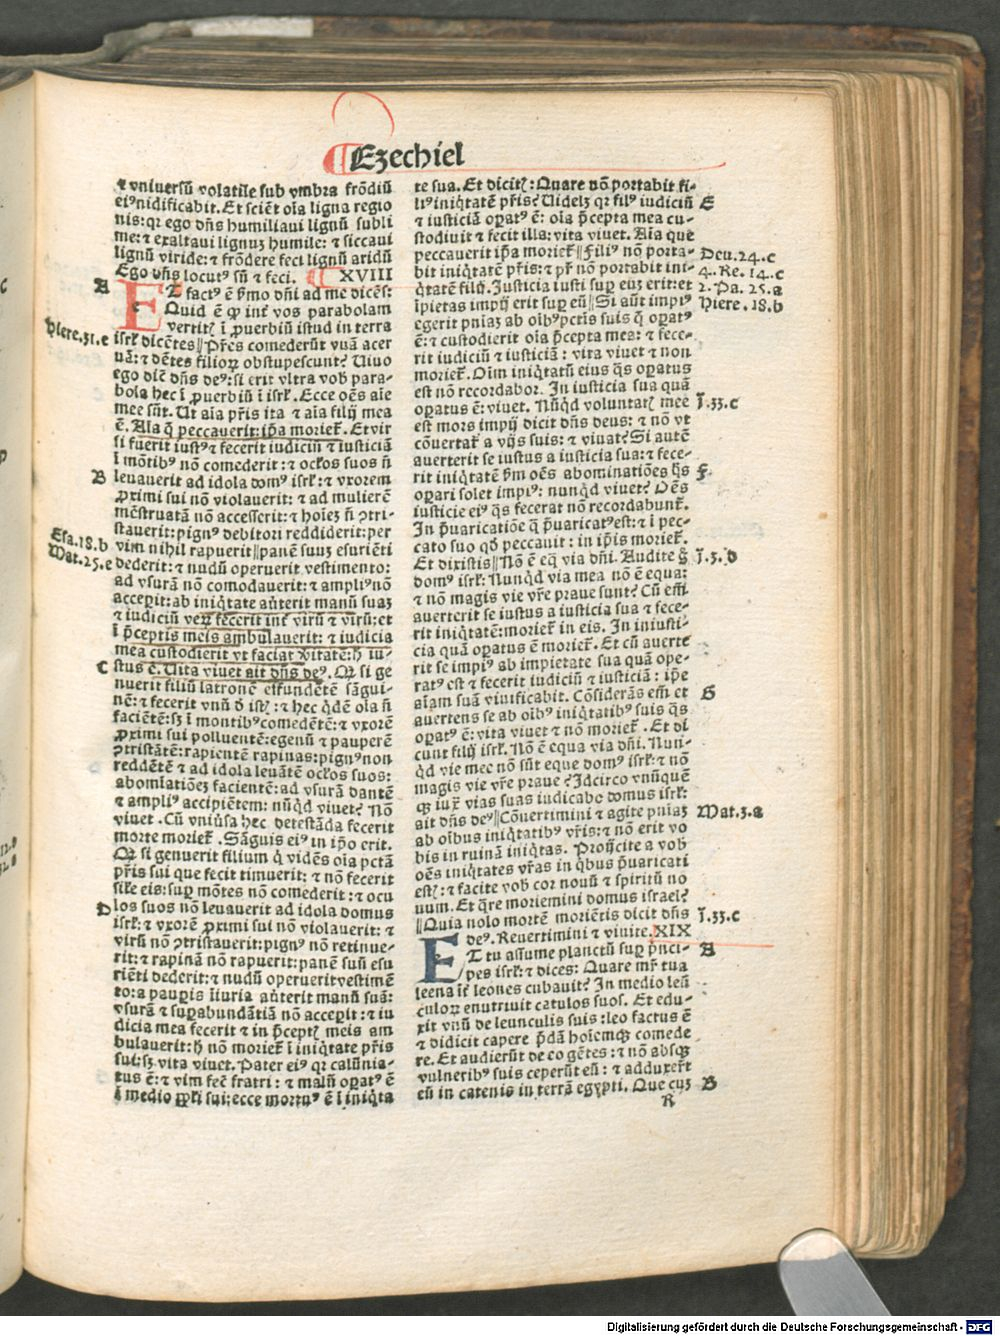 Ezechiel
⁊ vniuersū volatile sub vmbra frōdiū
eiꝰ nidificabit. Et sciēt oīa ligna regio
nis: qr ego dn̄s humiliaui lignū subli
me: ⁊ exaltaui lignuꝫ humile: ⁊ siccaui
lignū viride: ⁊ frōdere feci lignū aridū
Ego dn̄s locutꝰ sū ⁊ feci. XVIII
A
ET factꝰ ē ꝟmo dn̄i ad me dicēs:
Quid ē ꝙ int̄ vos parabolam
vertitꝭ ī ꝓuerbiū istud in terra
Hiere.31.e
isrl̓ dicētes ‖ Pr̄es comederūt vuā acer
uā: ⁊ dētes filioꝝ obstupescunt? Uiuo
ego dic̄ dn̄s deꝰ: si erit vltra vob̓ para-
bola hec ī ꝓuerbiū ī isrl̓. Ecce oēs aīe
mee sūt. Ut aīa pr̄is ita ⁊ aīa filij mea
ē. Aīa q̄ peccauerit: ip̄a morieꝉ. Et vir
si fuerit iustꝰ ⁊ fecerit iudiciū ⁊ iusticiā
ī mōtibꝰ nō comederit: ⁊ oc̓los suos n̄
B
leuauerit ad idola domꝰ isrl̓: ⁊ vxorem
ꝓximi sui nō violauerit: ⁊ ad mulierē
mēstruatā nō accesserit: ⁊ hoīeꝫ n̄ ꝯtri-
stauerit: pignꝰ debitori reddiderit: per
Esa.18.b
vim nihil rapuerit ‖ panē suuꝫ esuriēti
Mat.25.e
dederit: ⁊ nudū operuerit vestimento:
ad vsurā nō comodauerit: ⁊ ampliꝰ nō
acceꝑit: ab iniq̓tate aūterit manū suaꝫ
⁊ iudiciū veꝝ fecerit int̄ virū ⁊ virū: et
ī p̄ceptis meis ambulauerit: ⁊ iudicia
mea custodierit vt faciat ꝟitatē: h̓ iu-
C
stus ē. Uita viuet ait dn̄s deꝰ. Qꝫ si ge
nuerit filiū latronē effundētē sāgui-
nē: ⁊ fecerit vnū d̄ istꝭ: ⁊ hec q̓dē oīa n̄
faciētē: sꝫ ī montibꝰ comedētē: ⁊ vxorē
ꝓximi sui polluentē: egenū ⁊ pauperē
ꝯtristātē: rapientē rapinas: pignꝰ non
reddētē ⁊ ad idola leuātē oc̓los suos:
abomīatiōeꝫ facientē: ad vsurā dantē
⁊ ampliꝰ accipiētem: nūq̓d viuet? Nō
viuet. Cū vniūsa hec detestāda fecerit
morte morieꝉ. Sāguis eiꝰ in ip̄o erit.
Qꝫ si genuerit filium q̓ vidēs oīa pctā
pr̄is sui que fecit timuerit: ⁊ nō fecerit
sil̓e eis: suꝑ mōtes nō comederit: ⁊ ocu
D
los suos nō leuauerit ad idola domus
isrl̓: ⁊ vxorē ꝓximi sui nō violauerit: ⁊
virū nō ꝯtristauerit: pignꝰ nō retinue-
rit: ⁊ rapinā nō rapuerit: panē suū esu
riēti dederit: ⁊ nudū operuerit vestimē
to: a pauꝑis īiuria aūterit manū suā:
vsurā ⁊ suꝑabundātiā nō acceꝑit: ⁊ iu
dicia mea fecerit ⁊ in p̄ceptꝭ meis am
bulauerit: h̓ nō morieꝉ ī iniq̓tate pr̄is
sui: sꝫ vita viuet. Pater eiꝰ qr calūnia-
tus ē: ⁊ vim fec̄ fratri: ⁊ malū oꝑatꝰ ē
ī medio ppl̓i sui: ecce mortuꝰ ē ī iniq̓ta
te sua. Et dicitꝭ: Quare nō portabit fi-
liꝰ iniq̓tatē pr̄is? Uidelꝫ qr filꝰ iudiciū
E
⁊ iusticiā oꝑatꝰ ē: oīa p̄cepta mea cu-
stodiuit ⁊ fecit illa: vita viuet. Aīa que
peccauerit ip̄a morieꝉ ‖ Filiꝰ nō porta-
Deu.24.c
bit iniq̓tatē pr̄is: ⁊ pr̄ nō portabit ini-
4.Re.14.c
q̓tatē filij. Iusticia iusti suꝑ euꝫ erit: et
2.Pa.25.a
īpietas impij erit suꝑ eū ‖ Si aūt impiꝰ
Hiere.18.b
egerit pn̄iaꝫ ab oībꝰ pctīs suis q̄ oꝑatꝰ
ē: ⁊ custodierit oīa p̄cepta mea: ⁊ fece-
rit iudiciū ⁊ iusticiā: vita viuet ⁊ non
morieꝉ. Oīm iniq̓tatū eius q̄s oꝑatus
est nō recordabor. In iusticia sua quā
oꝑatus ē: viuet. Nūq̓d voluntatꝭ mee
J.33.c
est mors impij dicit dn̄s deus: ⁊ nō vt
cōuertaꝉ a vijs suis: ⁊ viuat? Si autē
auerterit se iustus a iusticia sua: ⁊ fece-
rit iniq̓tatē ẜm oēs abominatiōes q̄s
F
oꝑari solet impiꝰ: nunq̓d viuet? Oēs
iusticie eiꝰ q̄s fecerat nō recordabunꝉ.
In p̄uaricatiōe q̄ p̄uaricatꝰ est: ⁊ ī pec-
cato suo qd̓ peccauit: in ip̄is morieꝉ.
Et dixistis ‖ Nō ē eq̄ via dn̄i. Audite g̊
J.3.d
domꝰ isrl̓: Nunq̓d via mea nō ē equa:
⁊ nō magis vie vr̄e praue sunt? Cū em̄
auerterit se iustus a iusticia sua ⁊ fece-
rit iniq̓tatē: morieꝉ in eis. In iniusti-
cia quā oꝑatus ē morieꝉ. Et cū auerte
rit se impiꝰ ab impietate sua quā ope-
ratꝰ est ⁊ fecerit iudiciū ⁊ iusticiā: ip̄e
aīam suā viuificabit. Cōsiderās em̄ et
G
auertens se ab oībꝰ iniq̓tatibꝰ suis q̄s
oꝑatꝰ ē: vita viuet ⁊ nō morieꝉ. Et di
cunt filij isrl̓. Nō ē equa via dn̄i. Nun-
q̓d vie mee nō sūt eque domꝰ isrl̓: ⁊ nō
magis vie vr̄e praue? Idcirco vnūquē
qꝫ iux̄ vias suas iudicabo domus isrl̓:
ait dn̄s deꝰ ‖ Cōuertimini ⁊ agite pn̄iaꝫ
Mat.3.a
ab oībus iniq̓tatibꝰ vr̄is: ⁊ nō erit vo
bis in ruinā iniq̓tas. Proijcite a vob̓
oēs iniq̓tates vr̄as in q̓bus p̄uaricati
estꝭ: ⁊ facite vob̓ cor nouū ⁊ spiritū no
uum. Et q̄re moriemini domus israel?
‖ Quia nolo mortē moriētis dicit dn̄s
J.33.c
deꝰ. Reuertimini ⁊ viuite. XIX
ET tu assume planctū suꝑ p̓nci-
A
pes isrl̓: ⁊ dices: Quare mr̄ tua
leena īt̄ leones cubauit? In medio leū
culoꝝ enutriuit catulos suos. Et edu-
xit vnū de leunculis suis: leo factus ē
⁊ didicit capere p̄dā hoīemqꝫ comede
re. Et audierūt de eo gētes: ⁊ nō absqꝫ
vulneribꝰ suis ceperūt eū: ⁊ adduxer̄t
eū in catenis in terrā egypti. Que cuꝫ
B
R
Digitalisierung gefördert durch die Deutsche Forschungsgemeinschaft - DFG